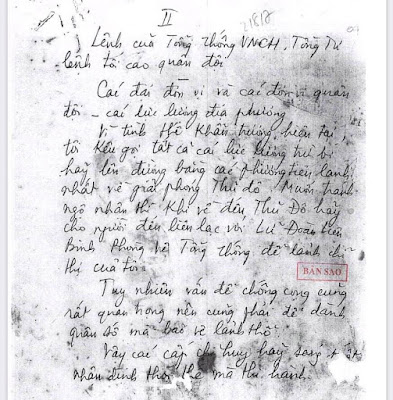 II
218/8
Lệnh của Tổng Thống VNCH, Tổng Tư
lệnh tối cao quân đội
Các đại đơn vị và các đơn vị quân
đội - các lực lượng địa phương
Vì tình thế khẩn trương hiện tại,
tôi kêu gọi tất cả các lực lượng trừ bị
hãy lên đường bằng các phương tiện nhanh
nhất về giải phóng Thủ đô. Muốn tránh
ngộ nhận thì khi về đến Thủ Đô hãy
cho người đến liên lạc với Lữ Đoàn Liên
Binh Phòng vệ Tổng Thống để lãnh chỉ
thị của tôi.
BẢN SAO
Tuy nhiên vấn đề chống cộng cũng
rất quan trọng nên cũng phải để dành
quân số mà bảo vệ lãnh thổ.
Vậy các cấp chỉ huy hãy sáng
nhận định thời thế mà thi hành.